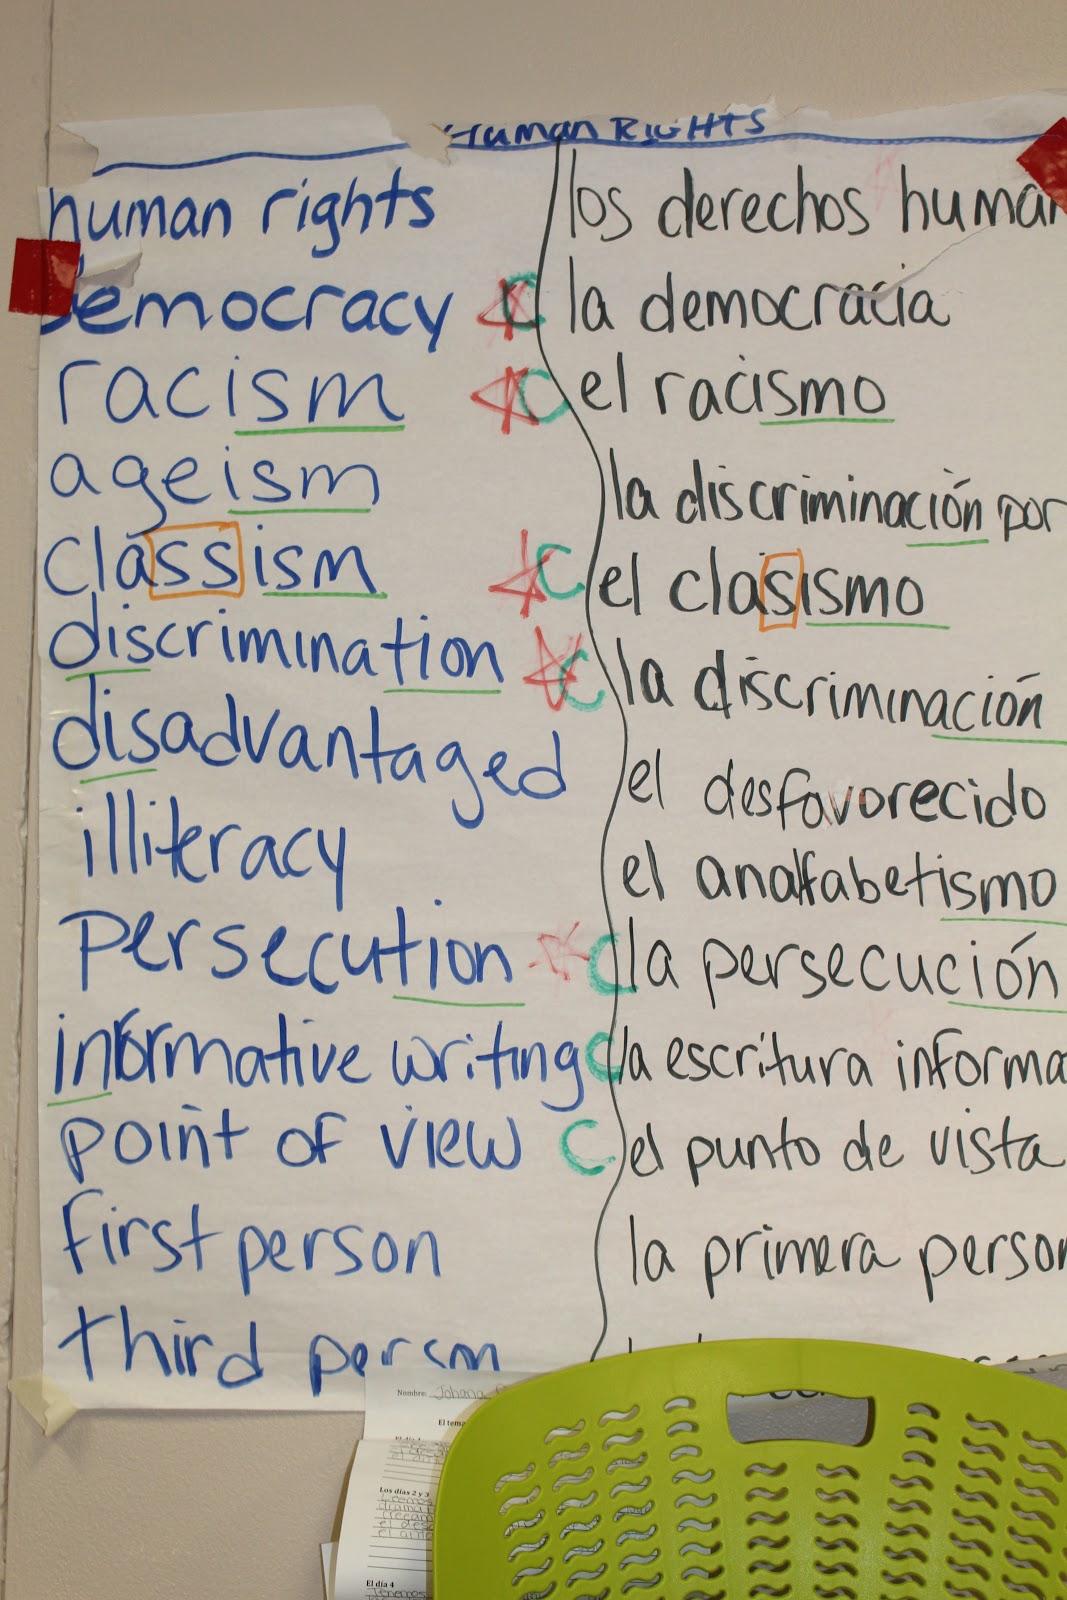 Human Rights
human rights los derechos human
democracy C la democracia
racism C el racismo
ageism la discriminación por
classism C el clasismo
discrimination C la discriminación
disadvantaged el desfavorecido
illiteracy el analfabetismo
persecution C la persecución
informative writing C la escritura informa
point of view C el punto de vista
first person la primera person
third person
Nombre: Johana
El tema
Los días 2 y 3
Leemos
El día 4
Tenemos